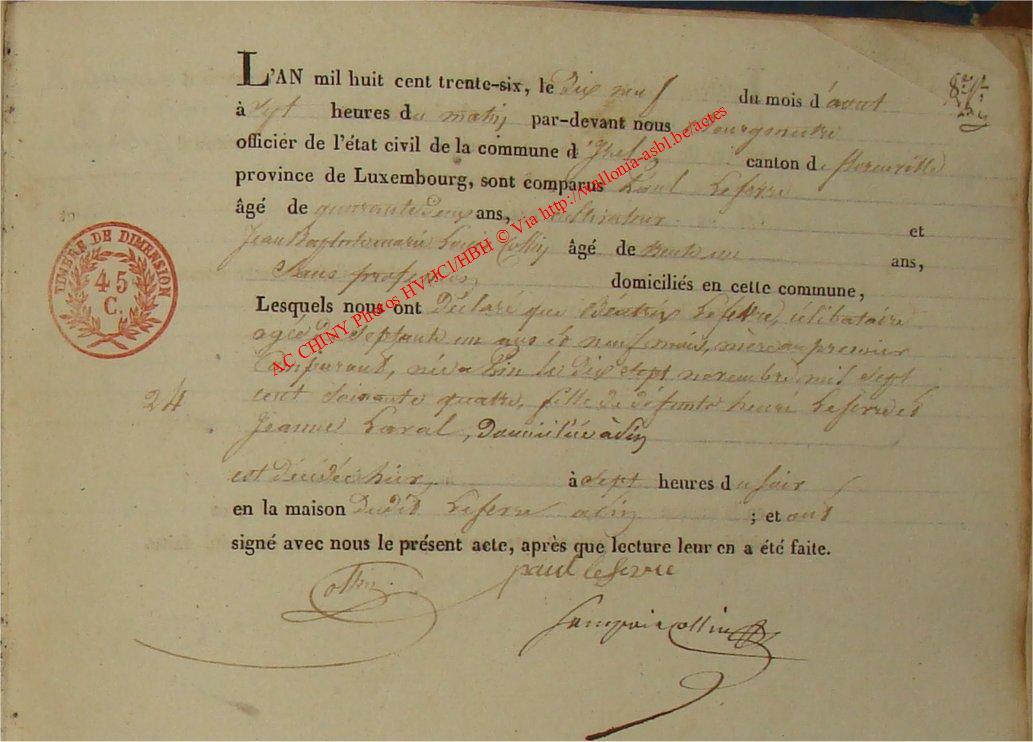 L'AN mil huit cent trente-six, le Dix neuf du mois d'aout
à sept heures du matin par-devant nous Bourgmestre
officier de l'état civil de la commune d' canton de florenville
province de Luxembourg, sont comparus Paul Lefevre
âgé de quarante deux ans, Cultivateur et
Jean Baptiste marie Louis Collin âgé de trente un ans,
Sans profession, domiciliés en cette commune,
Lesquels nous ont Déclaré que Béatrix Lefevre, célibataire
agée de Septante un ans et neuf mois, mère au premier
Comparant, née a le Dix sept novembre mil sept
cent soixante quatre, fille de défunts henri Lefevre et
Jeanne Laval, Domiciliée à
est décédée hier, à sept heures du soir
en la maison Dudit Lefevre ; et ont
signé avec nous le présent acte, après que lecture leur en a été faite.
Collin paul lefevre
Collin
TIMBRE DE DIMENSION
45
C.
24
AC CHINY Photos HV/JCl/HBH © Via http://wallonia-asbl.be/actes